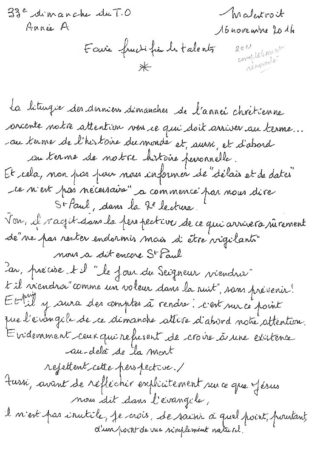 33e dimanche du T.O
Malestroit
Année A
16 novembre 2014
Faire fructifier les talents
*
La liturgie des derniers dimanches de l'année chrétienne
oriente notre attention vers ce qui doit arriver au terme...
au terme de l'histoire du monde et, aussi, et d'abord
au terme de notre histoire personnelle.
Et cela, non pas pour nous informer de "délais et de dates"
ce n'est pas nécessaire" a commencé par nous dire
St Paul, dans la 2e lecture
Non, il s'agit dans la perspective de ce qui arrivera sûrement
de "ne pas rester endormis mais d'être vigilants"
nous a dit encore St Paul
Car, précise-t-il "le jour du Seigneur viendra"
et il viendra "comme un voleur dans la nuit", sans prévenir!
Et puis il y aura des comptes à rendre : c'est sur ce point
que l'évangile de ce dimanche attire d'abord notre attention.
Evidemment ceux qui refusent de croire à une existence
au-delà de la mort
rejettent cette perspective./
Aussi, avant de réfléchir explicitement sur ce que Jésus
nous dit dans l'évangile,
il n'est pas inutile, je crois, de saisir à quel point, pourtant,
d'un point de vue simplement naturel.